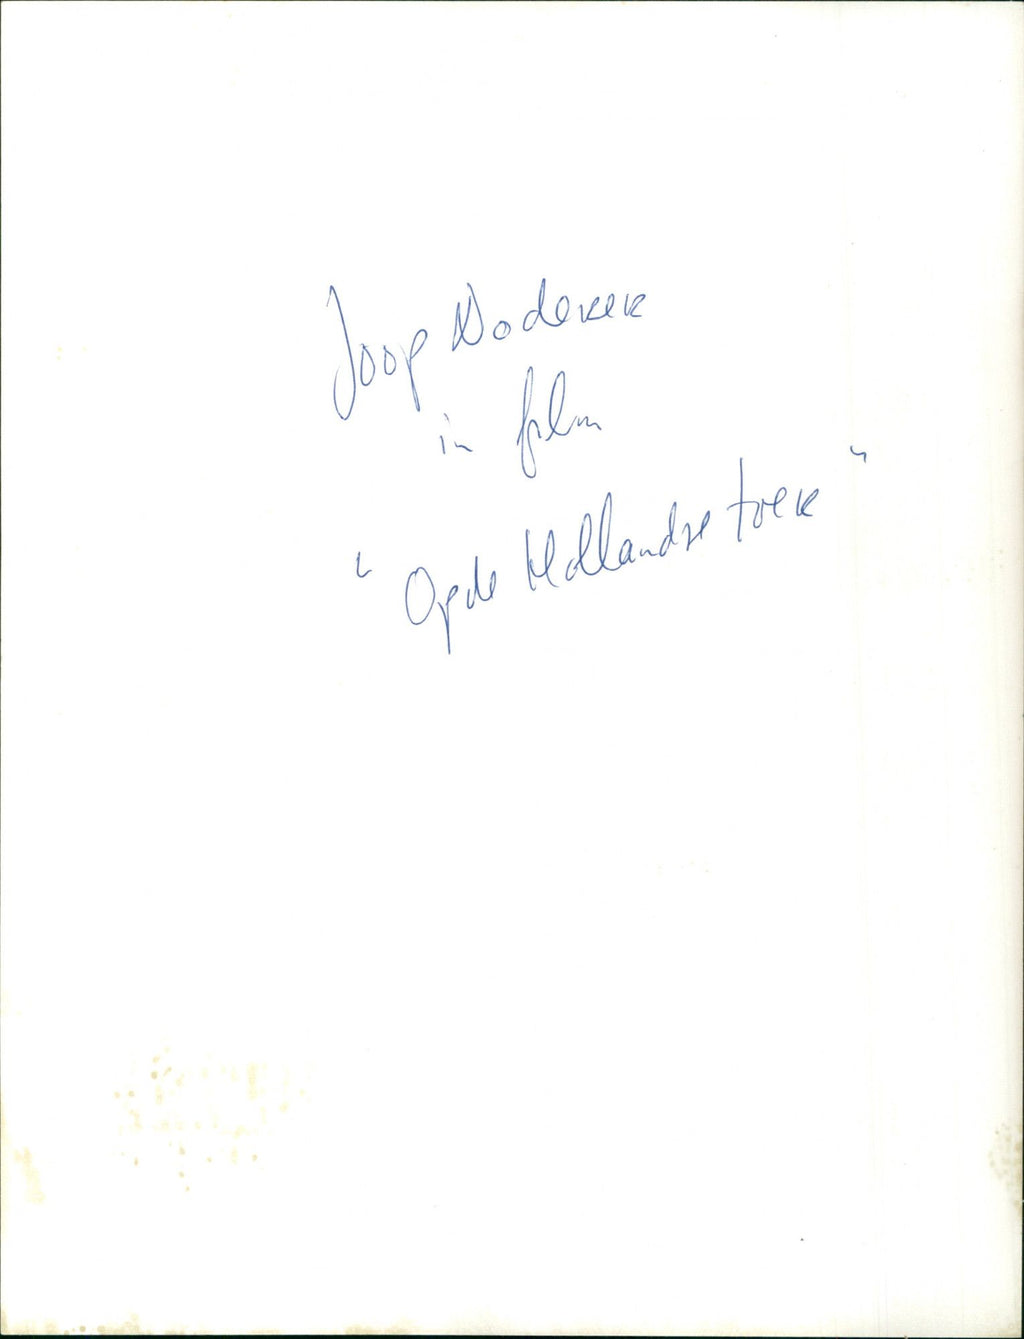 Joop Doderer
in film
"Op de Hollandse toer"